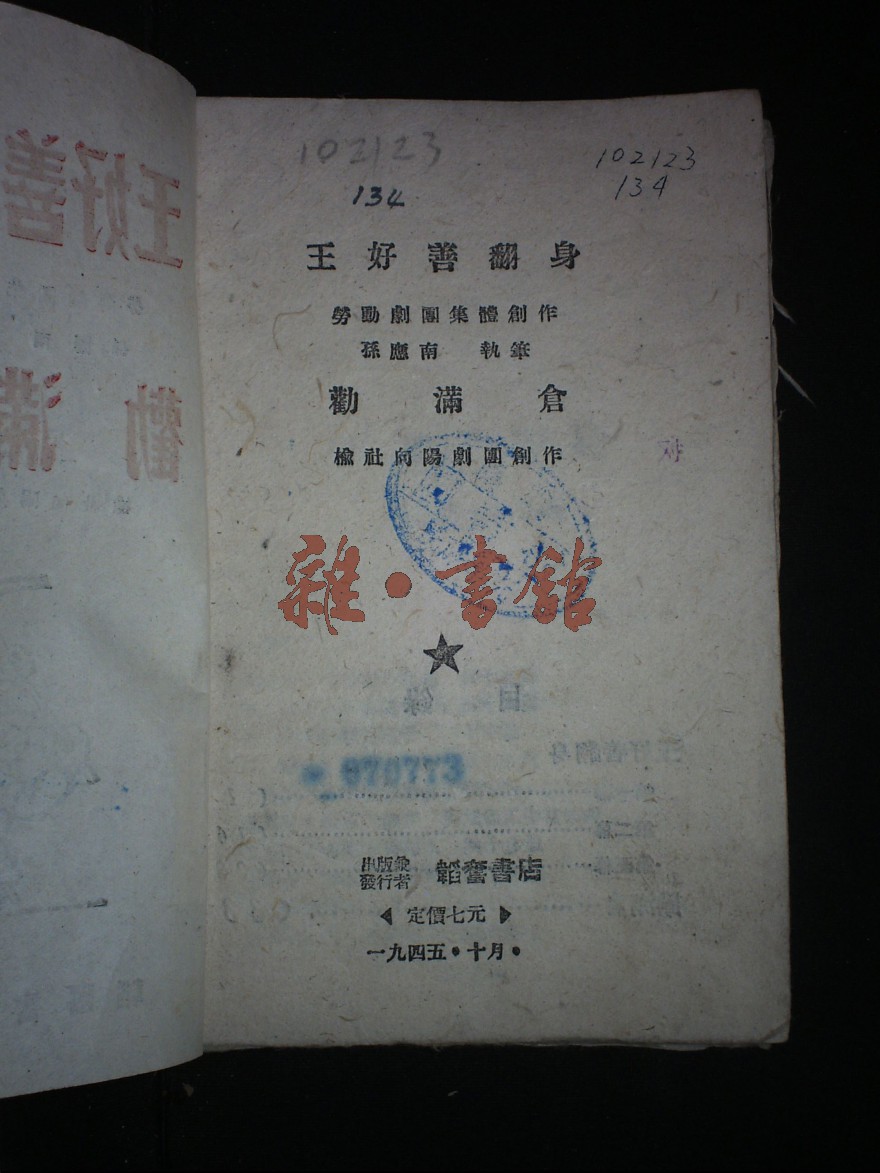 102123
134
102123
134
王好善翻身
勞動劇團集體創作
孫應南 執筆
勸滿倉
榆社向陽劇團創作
雜·書館
970773
出版兼
發行者 韜奮書店
定價七元
一九四五·十月·
王好善
勸滿